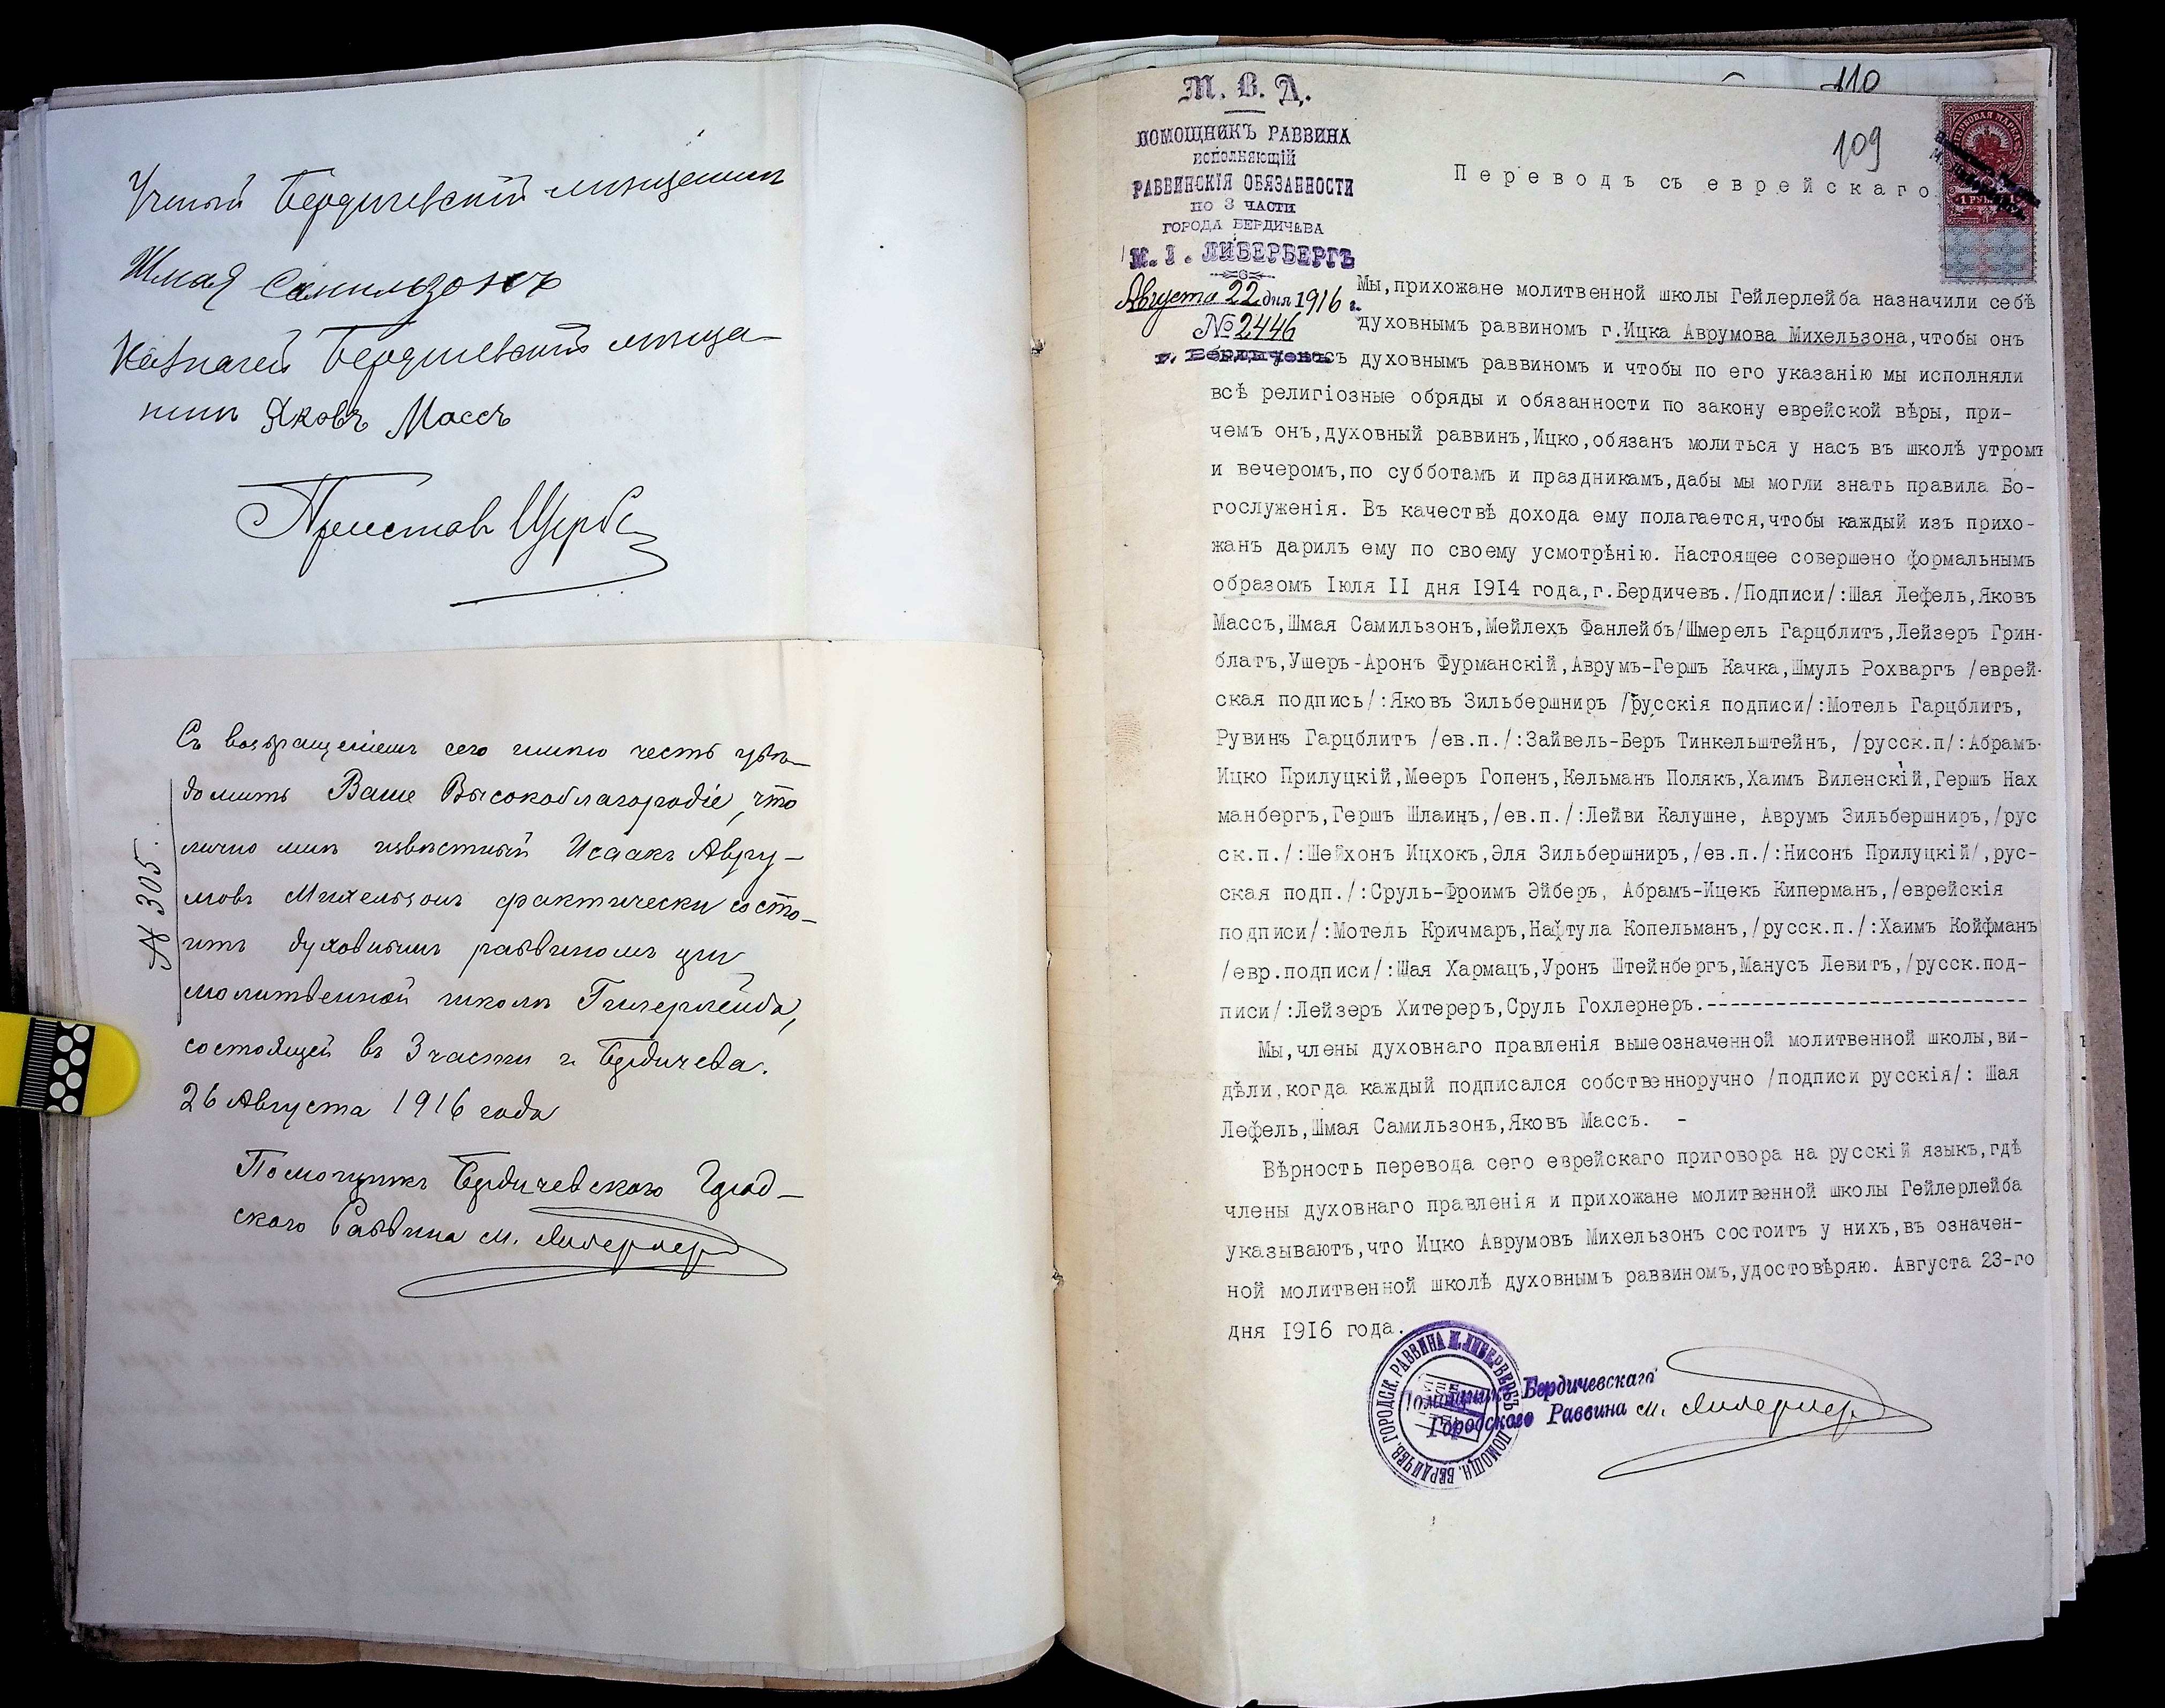 Ученый Бердичевскій мѣщанинъ
Шмая Самильзонъ
Казначей Бердичевскій мѣща-
нинъ Яковъ Массъ
Приставъ
№ 305.
Съ возвращеніемъ сего имѣю честь увѣ-
домить Ваше Высокоблагородіе, что
лично мнѣ извѣстный Исаакъ Авру-
мовъ Михельзонъ фактически состо-
итъ духовнымъ раввиномъ при
молитвенной школѣ Гейлерлейба,
состоящей въ 3 части г. Бердичева.
26 Августа 1916 года
Помощникъ Бердичевского Город-
ского Раввина М. Либерберг
110
109
М. В. Д.
ПОМОЩНИКЪ РАВВИНА
ИСПОЛНЯЮЩІЙ
РАВВИНСКІЯ ОБЯЗАННОСТИ
ПО 3 ЧАСТИ
ГОРОДА БЕРДИЧЕВА
М. І. ЛИБЕРБЕРГЪ
Августа 22 дня 1916 г.
№ 2446
г. Бердичевъ
1 РУБ. 1
Переводъ съ еврейскаго
Мы,прихожане молитвенной школы Гейлерлейба назначили себѣ
духовнымъ раввиномъ г.Ицка Аврумова Михельзона,чтобы онъ
съ духовнымъ раввиномъ и чтобы по его указанію мы исполняли
всѣ религіозные обряды и обязанности по закону еврейской вѣры, при-
чемъ онъ,духовный раввинъ,Ицко,обязанъ молиться у насъ въ школѣ утромъ
и вечеромъ,по субботамъ и праздникамъ,дабы мы могли знать правила Бо-
гослуженія. Въ качествѣ дохода ему полагается,чтобы каждый изъ прихо-
жанъ дарилъ ему по своему усмотрѣнію. Настоящее совершено формальнымъ
образомъ Іюля II дня 1914 года,г.Бердичевъ./Подписи/:Шая Лефель,Яковъ
Массъ,Шмая Самильзонъ,Мейлехъ Фанлейбъ/Шмерель Гарцблитъ,Лейзеръ Грин-
блатъ,Ушеръ-Аронъ Фурманскій,Аврумъ-Гершъ Качка,Шмуль Рохваргъ /еврей-
ская подпись/:Яковъ Зильбершниръ /русскія подписи/:Мотель Гарцблитъ,
Рувинъ Гарцблитъ /ев.п./:Зайвель-Беръ Тинкельштейнъ, /русск.п/:Абрамъ-
Ицко Прилуцкій,Мееръ Гопенъ,Кельманъ Полякъ,Хаимъ Виленскій,Гершъ Нах
манбергъ,Гершъ Шлаинъ,/ев.п./:Лейви Калушне, Аврумъ Зильбершниръ,/рус
ск.п./:Шейхонъ Ицхокъ,Эля Зильбершниръ,/ев.п./:Нисонъ Прилуцкій/,рус-
ская подп./:Сруль-Фроимъ Эйберъ, Абрамъ-Ицекъ Киперманъ,/еврейскія
подписи/:Мотель Кричмаръ,Нафтула Копельманъ,/русск.п./:Хаимъ Койфманъ
/евр.подписи/:Шая Хармацъ,Уронъ Штейнбергъ,Манусъ Левитъ,/русск.под-
писи/:Лейзеръ Хитереръ,Сруль Гохлернеръ.----------------------------
Мы,члены духовнаго правленія вышеозначенной молитвенной школы,ви-
дѣли,когда каждый подписался собственноручно /подписи русскія/: Шая
Лефель,Шмая Самильзонъ,Яковъ Массъ. -
Вѣрность перевода сего еврейскаго приговора на русскій языкъ,гдѣ
члены духовнаго правленія и прихожане молитвенной школы Гейлерлейба
указываютъ,что Ицко Аврумовъ Михельзонъ состоитъ у нихъ,въ означен-
ной молитвенной школѣ духовнымъ раввиномъ,удостовѣряю. Августа 23-го
дня 1916 года.
Помощникъ Бердичевскаго
Городского Раввина М. Либерберг
ПОМОЩН. БЕРДИЧЕВ. ГОРОДСК. РАВВИНА М. ЛИБЕРБЕРГЪ